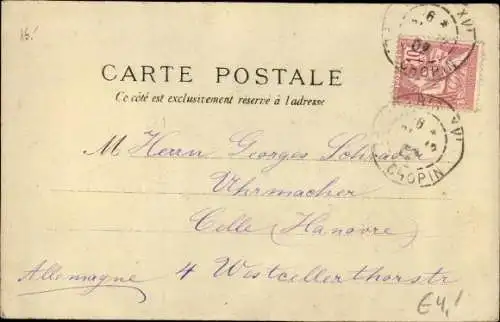 15.
XVI
10
CHOPIN
CARTE POSTALE
Ce côté est exclusivement réservé à l'adresse
XVI
CHOPIN
M Herrn Georges Schrader
Uhrmacher
Celle (Hanovre)
Allemagne 4 Westcellerthorstr
€4,!